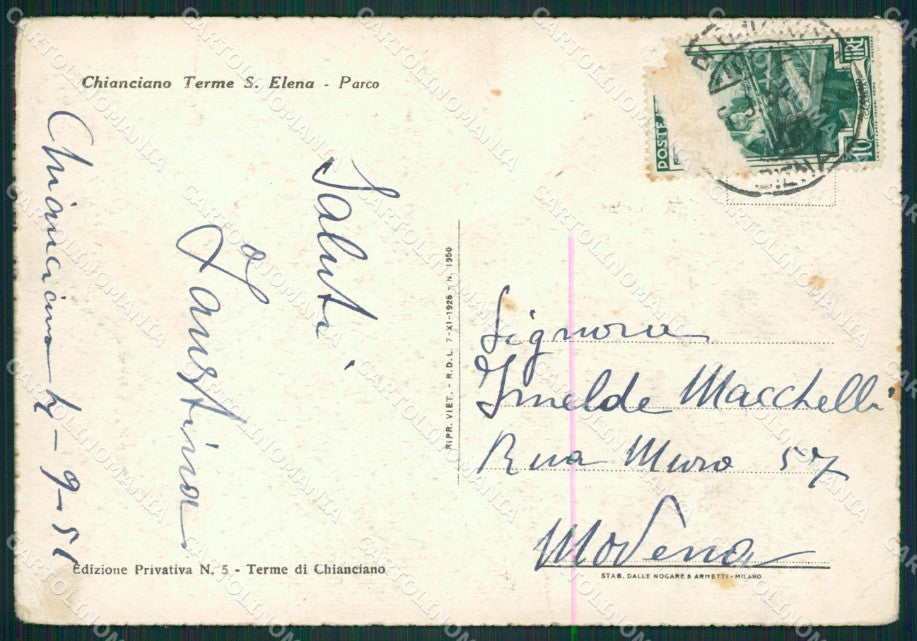 Chianciano Terme S. Elena - Parco
Chianciano 4-9-51
Saluti
Faustina
RIPR. VIET. - R.D.L. 7-XI-1925 - N. 1950
POSTE
LIRE
10
SIENA
Signora
Imelde Macchelli
Rua Muro 57
Modena
Edizione Privativa N. 5 - Terme di Chianciano
STAB. DALLE NOGARE & ARMETTI - MILANO
CARTOLINOMANIA